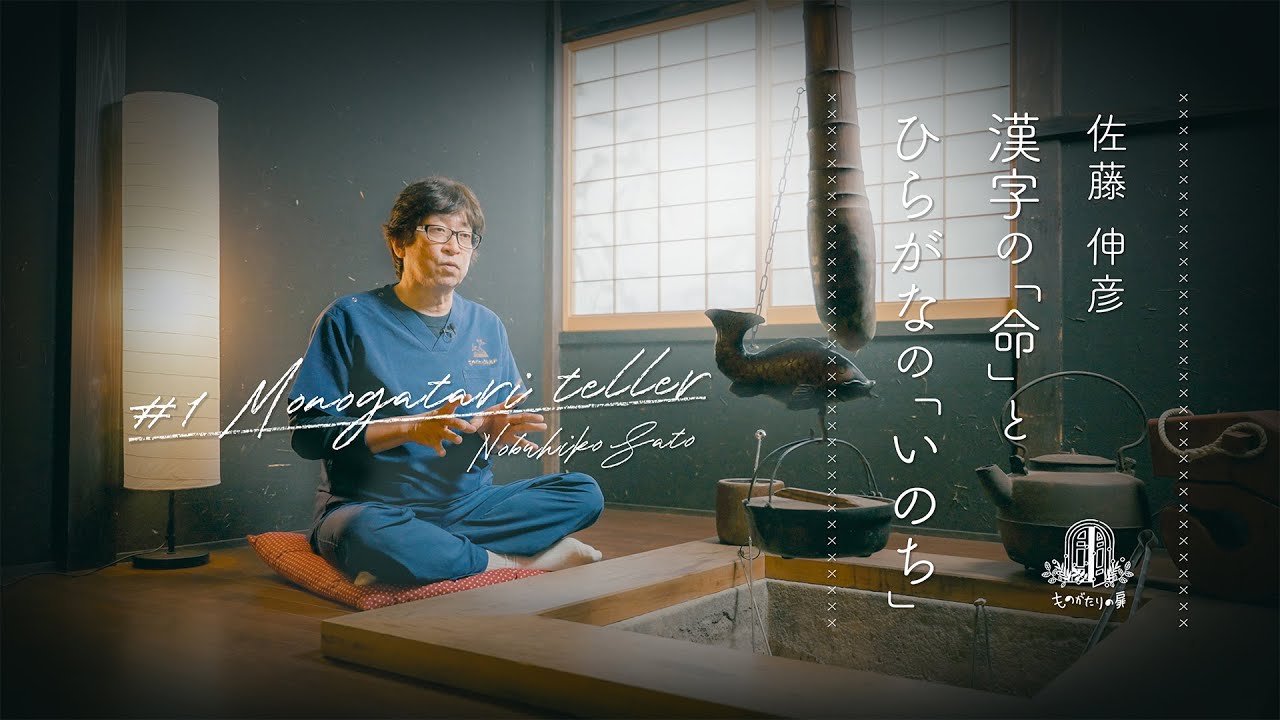 佐藤 伸彦
漢字の「命」と
ひらがなの「いのち」
#1 Monogatari teller
Nobuhiko Sato
ものがたりの扉